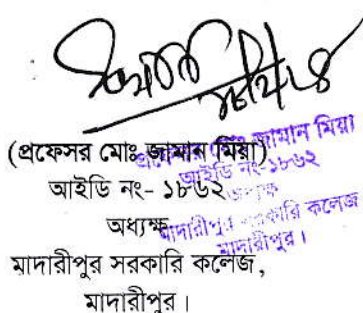 (প্রফেসর মোঃ জামান মিয়া)
আইডি নং- ১৮৬২
অধ্যক্ষ
মাদারীপুর সরকারি কলেজ,
মাদারীপুর।
জামান মিয়া
আইডি নং-১৮৬২
মাদারীপুর সরকারি কলেজ
মাদারীপুর।